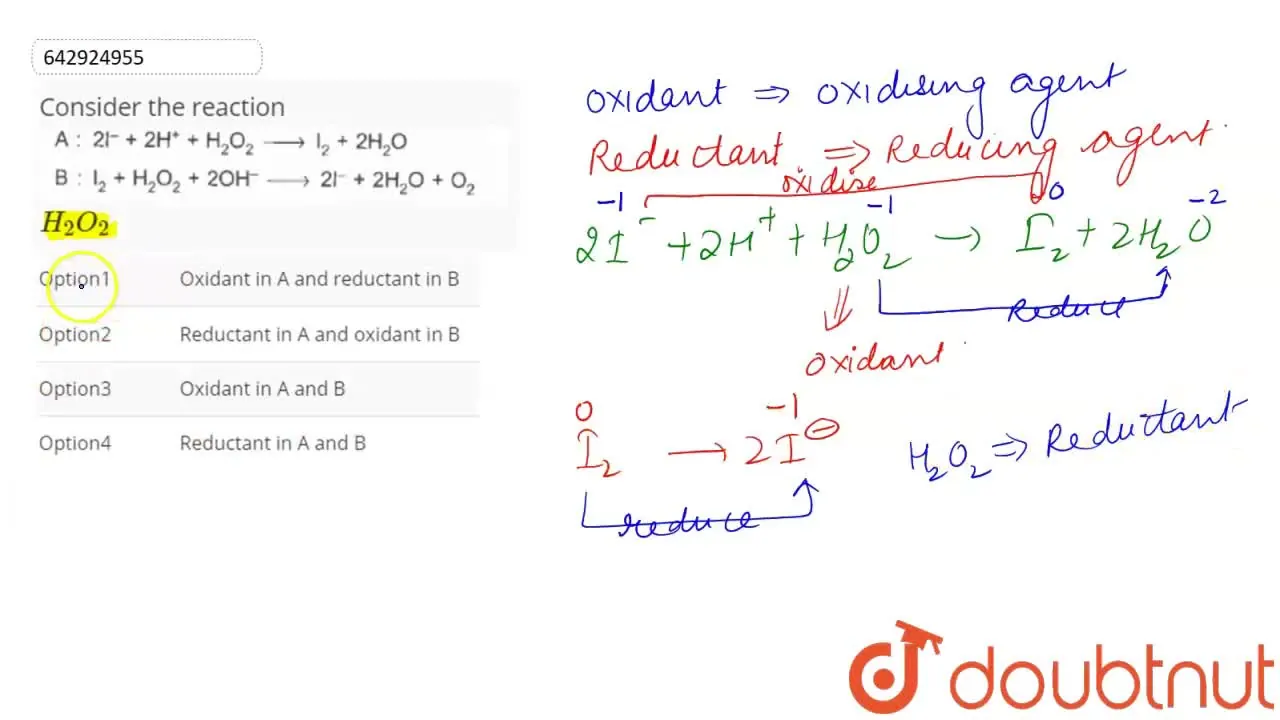 642924955
Consider the reaction
A : 2I⁻ + 2H⁺ + H₂O₂ ⟶ I₂ + 2H₂O
B : I₂ + H₂O₂ + 2OH⁻ ⟶ 2I⁻ + 2H₂O + O₂
H₂O₂
Option1 Oxidant in A and reductant in B
Option2 Reductant in A and oxidant in B
Option3 Oxidant in A and B
Option4 Reductant in A and B
oxidant ⇒ oxidising agent
Reductant ⇒ Reducing agent
oxidise
-1 -1 0 -2
2I⁻ + 2H⁺ + H₂O₂ → I₂ + 2H₂O
Reduce
⇓
oxidant
0 -1
I₂ → 2I⊖
reduce
H₂O₂ ⇒ Reductant
doubtnut